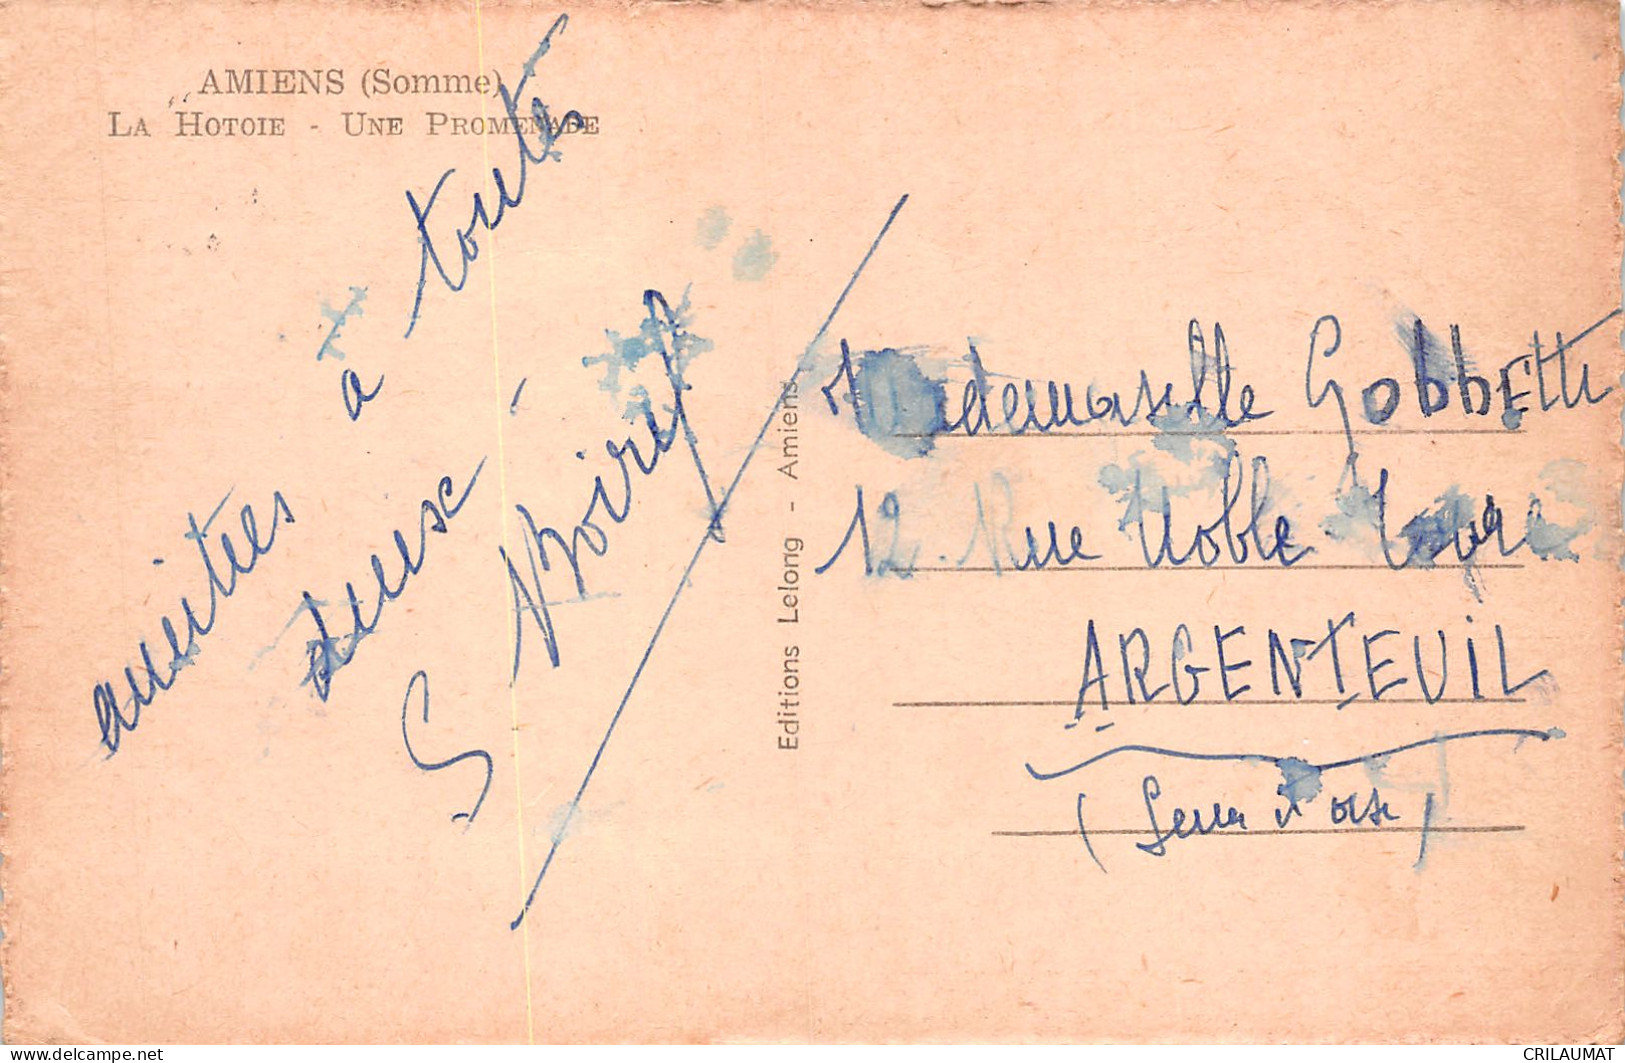 AMIENS (Somme)
LA HOTOIE - UNE PROMENADE
amitiés à toutes
deux -
S
Editions Lelong - Amiens
Mademoiselle GobbETTi
12. Rue Noble
ARGENTEUIL
(Seine et oise)
CRILAUMAT